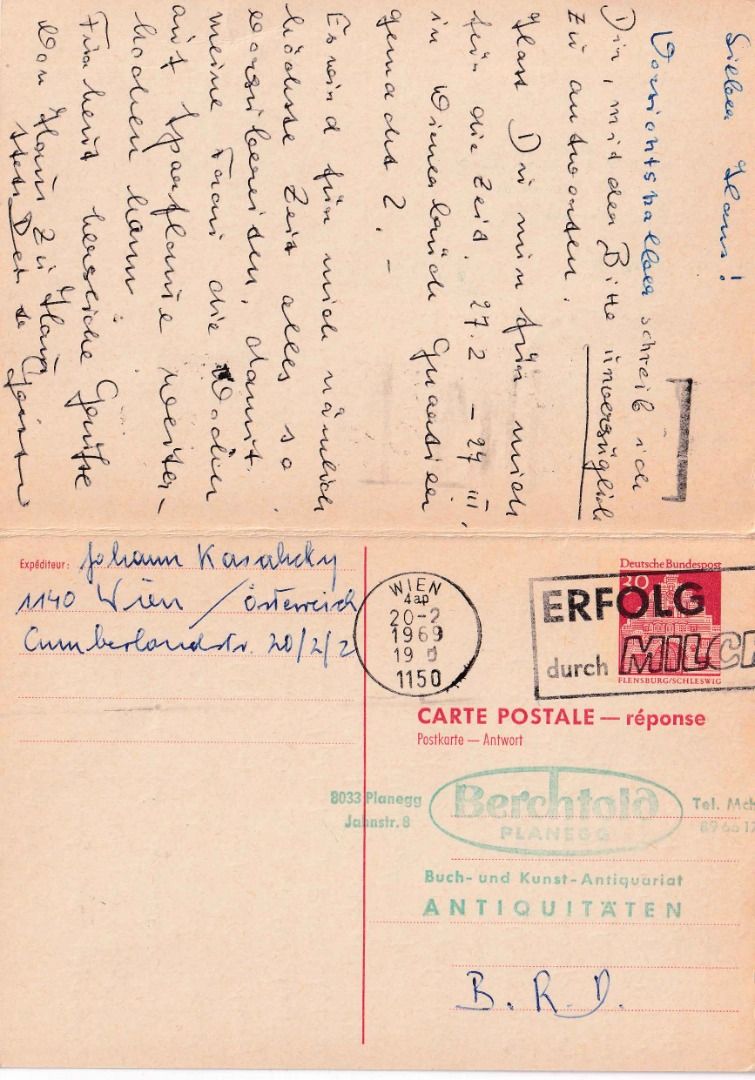 Lieber Hans!
Vorsichtshalber schreib ich
Dir, mit der Bitte unverzüglich
zu antworten.
Hast Du nun für mich
für die Zeit. 27.2 – 27 III,
in Quartier
gemacht ? . –
Es wird für mich nämlich
höchste Zeit alles so
vorzubereiten, damit
meine Frau die
auf Sparflamme weiter-
kochen kann.
Für heut herzliche Grüße
von Haus zu Haus
stets
Expéditeur: Johann
1140 Wien / Österreich
Cumberlandstr. 20/2/2
WIEN
4ap
20-2
1969
19
1150
Deutsche Bundespost
30
FLENSBURG/SCHLESWIG
ERFOLG
durch MILCH
CARTE POSTALE — réponse
Postkarte — Antwort
8033 Planegg
Jahnstr. 8
Berchtold
PLANEGG
Tel. Mch
Buch- und Kunst-Antiquariat
ANTIQUITÄTEN
B. R. D.